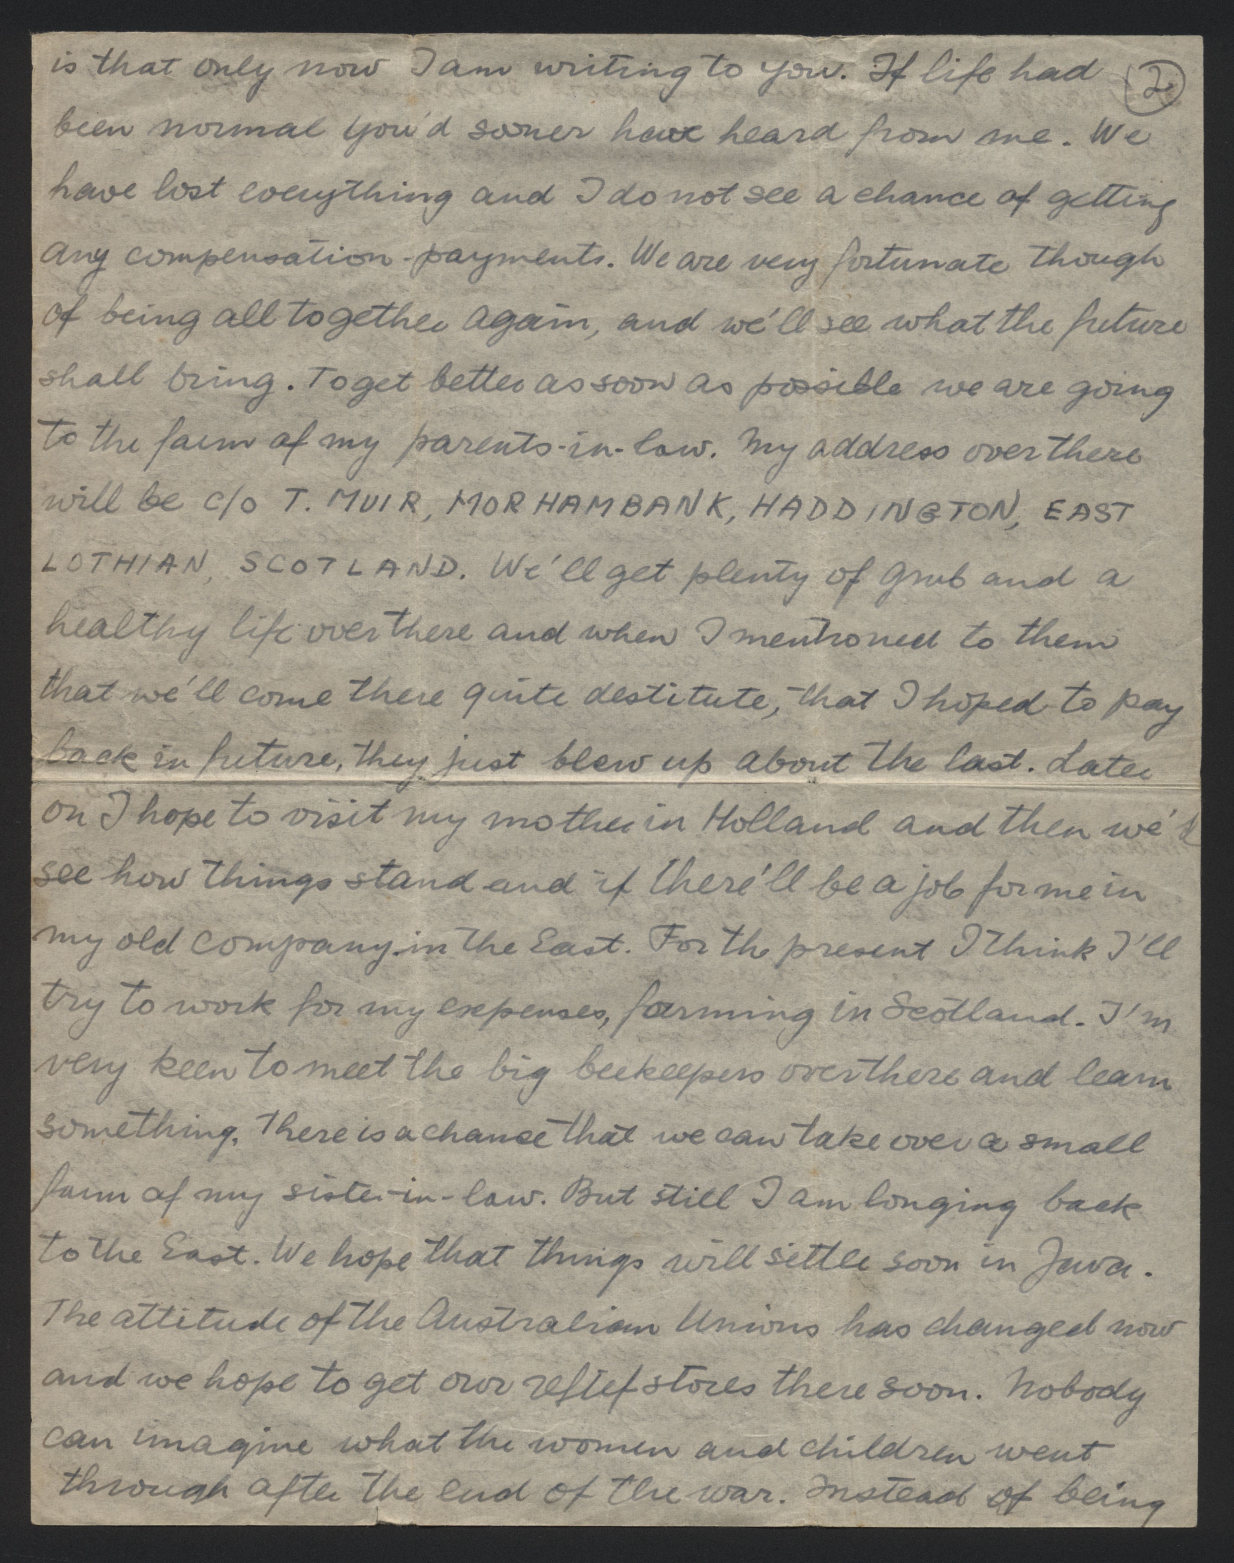 is that only now I am writing to you. If life had
2
been normal you'd sooner have heard from me. We
have lost everything and I do not see a chance of getting
any compensation-payments. We are very fortunate though
of being all together again, and we'll see what the future
shall bring. To get better as soon as possible we are going
to the farm of my parents-in-law. My address over there
will be c/o T. MUIR, MORHAMBANK, HADDINGTON, EAST
LOTHIAN, SCOTLAND. We'll get plenty of grub and a
healthy life over there and when I mentioned to them
that we'll come there quite destitute, that I hoped to pay
back in future, they just blew up about the last. Later
on I hope to visit my mother in Holland and then we'll
see how things stand and if there'll be a job for me in
my old company in the East. For the present I think I'll
try to work for my expenses, farming in Scotland. I'm
very keen to meet the big beekeepers over there and learn
something. There is a chance that we can take over a small
farm of my sister-in-law. But still I am longing back
to the East. We hope that things will settle soon in Java.
The attitude of the Australian Unions has changed now
and we hope to get our relief stores there soon. Nobody
can imagine what the women and children went
through after the end of the war. Instead of being